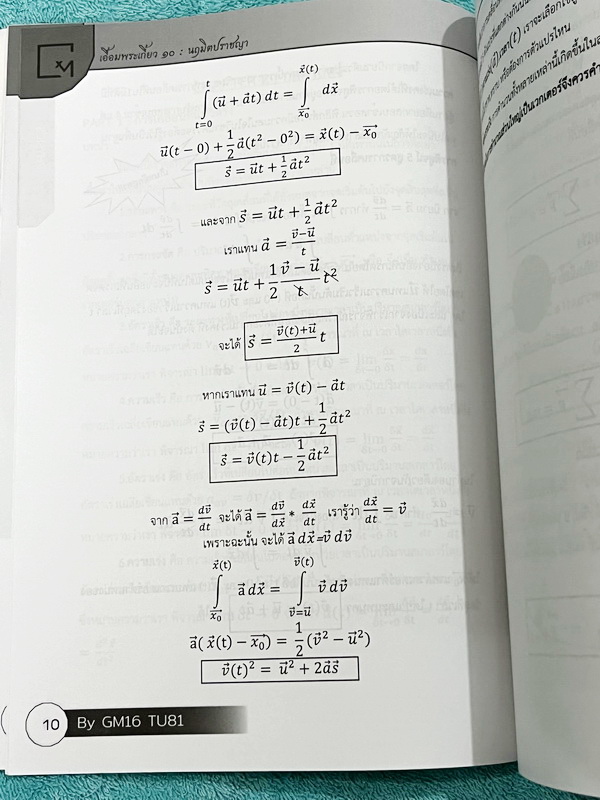 เอื้อมพระเกี้ยว ๑๐ : นฤมิตปราชญา
∫_{t=0}^{t} (u⃗ + a⃗t) dt = ∫_{x⃗₀}^{x⃗(t)} dx⃗
u⃗(t − 0) + 1/2 a⃗(t² − 0²) = x⃗(t) − x⃗₀
s⃗ = u⃗t + 1/2 a⃗t²
และจาก s⃗ = u⃗t + 1/2 a⃗t²
เราแทน a⃗ = (v⃗−u⃗)/t
s⃗ = u⃗t + 1/2 (v⃗ − u⃗)/t t²
จะได้ s⃗ = (v⃗(t)+u⃗)/2 t
หากเราแทน u⃗ = v⃗(t) − a⃗t
s⃗ = (v⃗(t) − a⃗t)t + 1/2 a⃗t²
s⃗ = v⃗(t)t − 1/2 a⃗t²
จาก a⃗ = dv⃗/dt จะได้ a⃗ = dv⃗/dx⃗ * dx⃗/dt เรารู้ว่า dx⃗/dt = v⃗
เพราะฉะนั้น จะได้ a⃗ dx⃗=v⃗ dv⃗
∫_{x⃗₀}^{x⃗(t)} a⃗ dx⃗ = ∫_{v⃗=u⃗}^{v⃗(t)} v⃗ dv⃗
a⃗( x⃗(t) − x⃗₀) = 1/2 (v⃗² − u⃗²)
v⃗(t)² = u⃗² + 2a⃗s⃗
10 By GM16 TU81